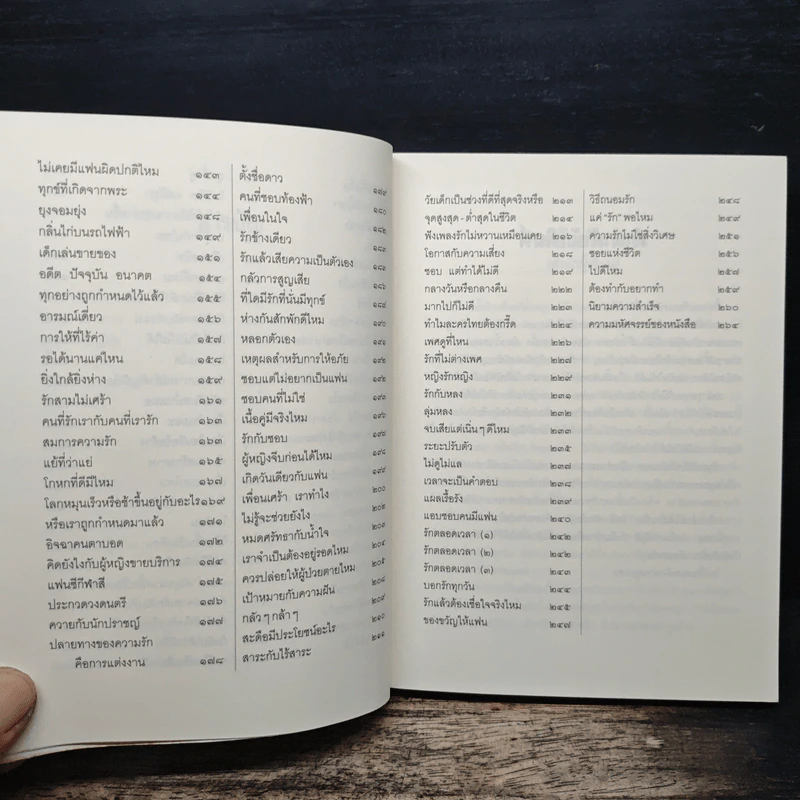 ไม่เคยมีแฟนผิดปกติไหม ๑๔๓
ทุกข์ที่เกิดจากพระ ๑๔๔
ยุงจอมยุ่ง ๑๔๘
กลิ่นไก่บนรถไฟฟ้า ๑๔๙
เด็กเล่นขายของ ๑๕๑
อดีต ปัจจุบัน อนาคต ๑๕๔
ทุกอย่างถูกกำหนดไว้แล้ว ๑๕๕
อารมณ์เดี่ยว ๑๕๖
การให้ที่ไร้ค่า ๑๕๗
รอได้นานแค่ไหน ๑๕๘
ยิ่งใกล้ยิ่งห่าง ๑๕๙
รักสามไม่เศร้า ๑๖๑
คนที่รักเรากับคนที่เรารัก ๑๖๓
สมการความรัก ๑๖๓
แย้ที่ว่าแย่ ๑๖๕
โกหกที่ดีมีไหม ๑๖๗
โลกหมุนเร็วหรือช้าขึ้นอยู่กับอะไร ๑๖๙
หรือเราถูกกำหนดมาแล้ว ๑๗๑
อิจฉาคนตาบอด ๑๗๒
คิดยังไงกับผู้หญิงขายบริการ ๑๗๔
แฟนซีกีฬาสี ๑๗๕
ประกวดวงดนตรี ๑๗๖
ควายกับนักปราชญ์ ๑๗๗
ปลายทางของความรัก
คือการแต่งงาน ๑๗๘
ตั้งชื่อดาว ๑๗๙
คนที่ชอบท้องฟ้า ๑๘๐
เพื่อนในใจ ๑๘๒
รักข้างเดียว
รักแล้วเสียความเป็นตัวเอง
กลัวการสูญเสีย
ที่ใดมีรักที่นั่นมีทุกข์
ห่างกันสักพักดีไหม
หลอกตัวเอง
เหตุผลสำหรับการให้อภัย
ชอบแต่ไม่อยากเป็นแฟน
ชอบคนที่ไม่ใช่
เนื้อคู่มีจริงไหม ๑๙๖
รักกับชอบ
ผู้หญิงจีบก่อนได้ไหม ๑๙๘
เกิดวันเดียวกับแฟน ๑๙๙
เพื่อนเศร้า เราทำไง ๒๐๐
ไม่รู้จะช่วยยังไง ๒๐๒
หมดศรัทธากับน้ำใจ ๒๐๔
เราจำเป็นต้องอยู่รอดไหม
ควรปล่อยให้ผู้ป่วยตายไหม ๒๐๕
เป้าหมายกับความฝัน ๒๐๘
กลัวๆ กล้าๆ ๒๐๙
สะดือมีประโยชน์อะไร ๒๑๐
สาระกับไร้สาระ ๒๑๑
วัยเด็กเป็นช่วงที่ดีที่สุดจริงหรือ ๒๑๓
จุดสูงสุด - ต่ำสุดในชีวิต ๒๑๔
ฟังเพลงรักไม่หวานเหมือนเคย ๒๑๖
โอกาสกับความเสี่ยง ๒๑๘
ชอบ แต่ทำได้ไม่ดี ๒๑๙
กลางวันหรือกลางคืน ๒๒๒
มากไปก็ไม่ดี ๒๒๓
ทำไมละครไทยต้องกรี๊ด ๒๒๔
เพศดูที่ไหน ๒๒๖
รักที่ไม่ต่างเพศ ๒๒๗
หญิงรักหญิง ๒๒๙
รักกับหลง ๒๓๑
ลุ่มหลง ๒๓๒
จบเสียแต่เนิ่นๆ ดีไหม ๒๓๓
ระยะปรับตัว ๒๓๕
ไม่ดูไม่แล ๒๓๗
เวลาจะเป็นคำตอบ ๒๓๘
แผลเรื้อรัง ๒๓๙
แอบชอบคนมีแฟน ๒๔๐
รักตลอดเวลา (๑) ๒๔๒
รักตลอดเวลา (๒) ๒๔๒
รักตลอดเวลา (๓) ๒๔๓
บอกรักทุกวัน ๒๔๔
รักแล้วต้องเชื่อใจจริงไหม ๒๔๕
ของขวัญให้แฟน ๒๔๗
วิธีถนอมรัก ๒๔๘
แค่ “รัก” พอไหม ๒๔๙
ความรักไม่ใช่สิ่งวิเศษ ๒๕๑
ซอยแห่งชีวิต ๒๕๖
ไปดีไหม ๒๕๗
ต้องทำกับอยากทำ ๒๕๙
นิยามความสำเร็จ ๒๖๐
ความมหัศจรรย์ของหนังสือ ๒๖๔